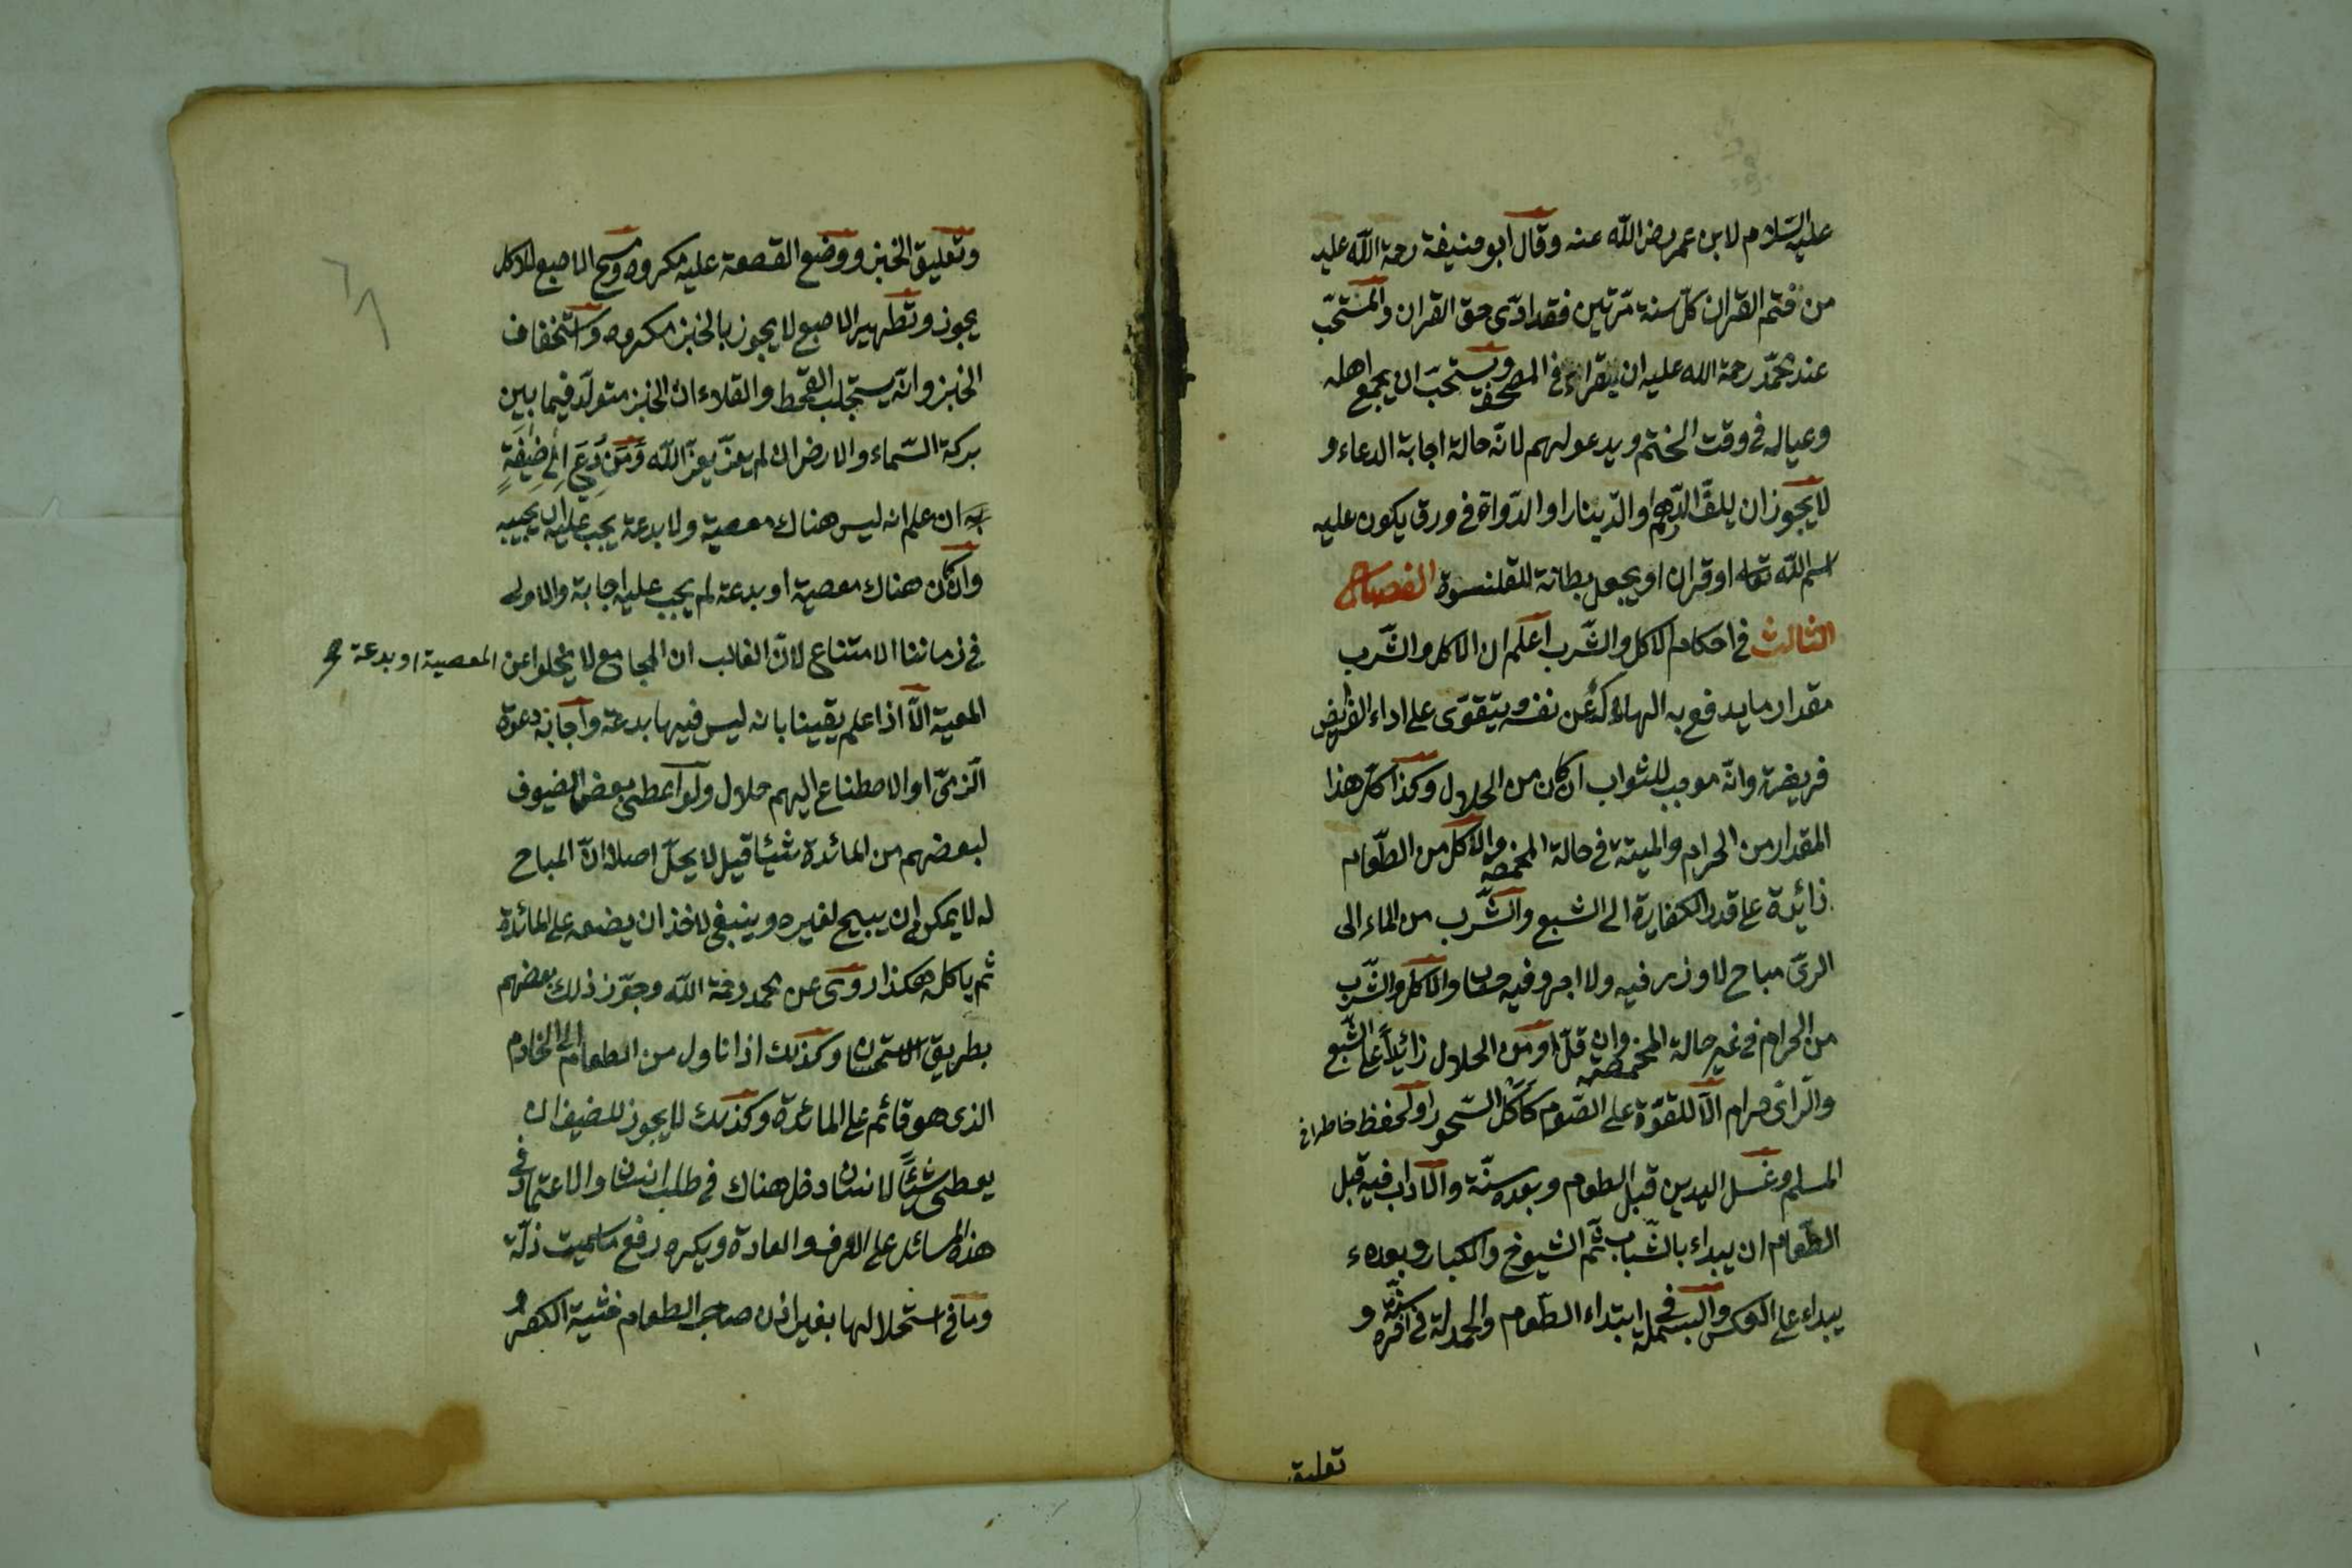 عليه السلام لابن عمر رضى الله عنه وقال ابو حنيفة رحمة الله عليه
من ختم القران كل سنة مرتين فقد ادى حق القران والمستحب
عند محمد رحمة الله عليه ان يقراء فى المصحف ويستحب ان يجمع اهله
وعياله فى وقت الختم ويدعو لهم لانه حالة اجابة الدعاء و
لا يجوز ان يلف الدرهم او الدينار او الدواة فى ورق يكون عليه
اسم الله تعالى او قران او يجعل بطانة للقلنسوة الفصل
الثالث فى احكام الاكل والشرب اعلم ان الاكل والشرب
مقدار ما يدفع به الهلاك عن نفسه ويتقوى على اداء الفرايض
فريضة وانه موجب للثواب ان كان من الحلال وكذا اكل هذا
المقدار من الحرام والميتة فى حالة المخمصة والاكل من الطعام
زائدة على قدر الكفاية الى الشبع والشرب من الماء الى
الرى مباح لا وزر فيه ولا اجر وفيه حساب والاكل والشرب
من الحرام فى غير حالة المخمصة وان قل او من الحلال زائداً على الشبع
والراى حرام الا للتقوة على الصوم كاكل السحور او لحفظ خاطر اخ
المسلم وغسل اليدين قبل الطعام وبعده سنة والاداب فيه قبل
الطعام ان يبداء بالشباب ثم الشيوخ والكبار وبعده
يبداء على العكس والبسملة فى ابتداء الطعام والحمدلة فى اخره سنة و
تعليق
وتعليق الخبز ووضع القصعة عليه مكروه ومسح الاصبع للاكل
يجوز وتطهير الاصبع لا يجوز بالخبز مكروه واستخفاف
الخبز وانه يستجلب القحط والقلاء ان الخبز متولد فيما بين
بركة السماء والارض ان لم يعز يعز الله ومن دعى الى ضيفة
ان علم انه ليس هناك معصية ولا بدعة يجب عليه ان يجيبه
وان كان هناك معصية او بدعة لم يجب عليه اجابة والاولى
فى زماننا الامتناع لان الغالب ان المجامع لا يخلوا عن المعصية او بدعة
المعية الا اذا علم يقينا بانه ليس فيها بدعة واجابة دعوة
الزمى او الاصطناع اليهم حلال ولو اعطى بعض الضيوف
لبعضهم من المائدة شيئا قيل لا يحل اصلا لان المباح
له لا يمكن ان يبيح لغيره وينبغى للاخذ ان يضعه على المائدة
ثم ياكله هكذا روى عن محمد رحمة الله وجوز ذلك بعضهم
بطريق الاستحسان وكذلك اذا ناول من الطعام الى الخادم
الذى هو قائم على المائدة وكذلك لا يجوز للضيف ان
يعطى شيئاً لانسان دخل هناك فى طلب انسان والاعتماد فى
هذه المسائل على العرف والعادة ويكره رفع ما سميت ذلة
وما فى استحلالها بغير اذن صاحب الطعام خشية الكفر